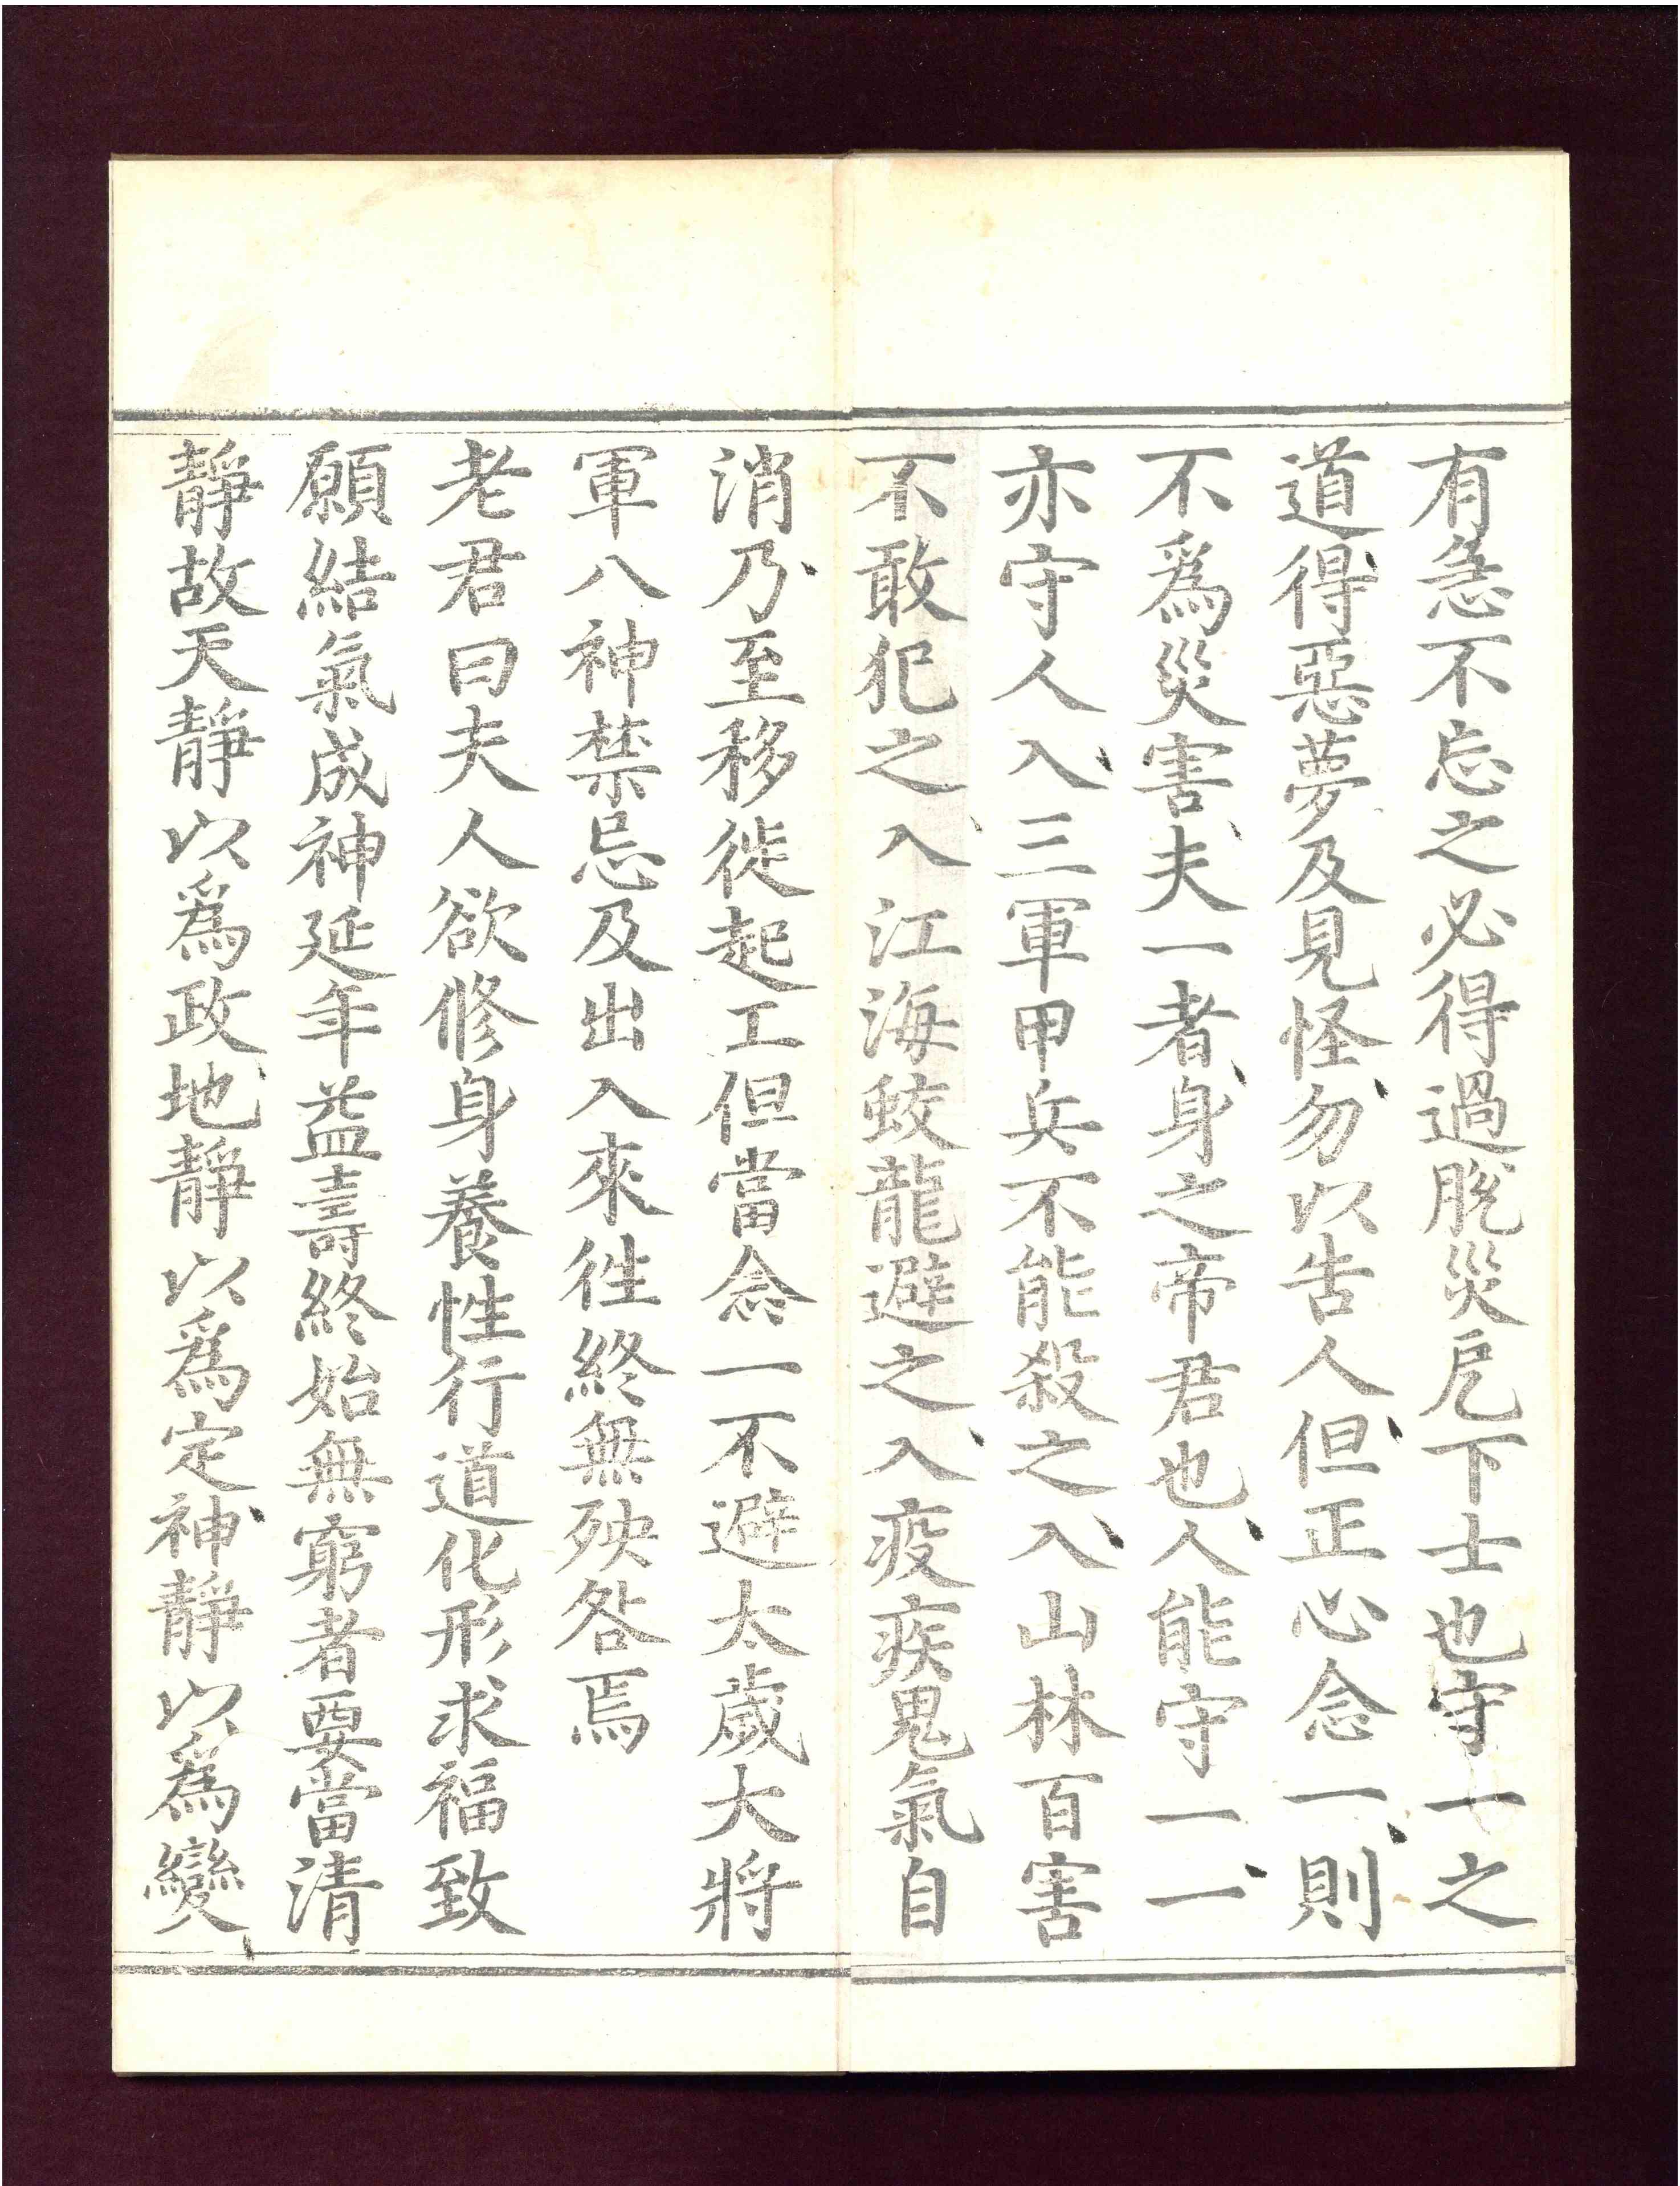 有急不忘之必得過脫災厄下士也守一之
道得惡夢及見怪勿以告人但正心念一則
不爲災害夫一者身之帝君也人能守一一
亦守人入三軍甲兵不能殺之入山林百害
不敢犯之入江海蛟龍避之入疫疾鬼氣自
消乃至移徙起工但當念一不避太歲大將
軍八神禁忌及出入來徃終無殃咎焉
老君曰夫人欲修身養性行道化形求福致
願結氣成神延年益壽終始無窮者要當清
靜故天靜以爲政地靜以爲定神靜以爲變